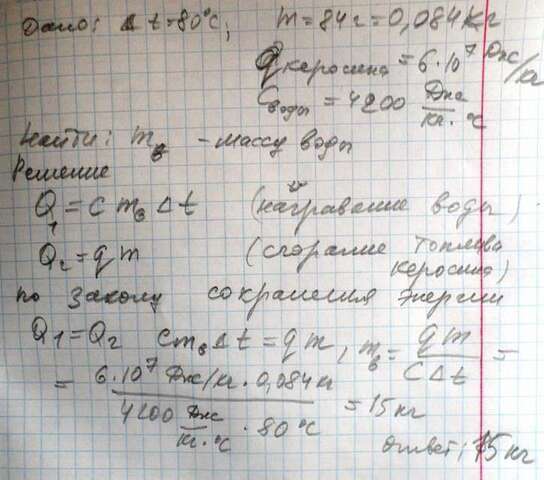 Дано: Δt=80°C; m=84г=0,084кг
qкеросина=6·10⁷ Дж/кг
Cводы=4200 Дж/кг·°C
Найти: mв - массу воды
Решение
Q₁=cmвΔt (нагревание воды)
Q₂=qm (сгорание топлива
керосина)
по закону сохранения энергии
Q₁=Q₂ cmвΔt=qm, mв=qm/CΔt=
=6·10⁷ Дж/кг·0,084кг/4200 Дж/кг·°C·80°C=15кг
ответ: 15кг